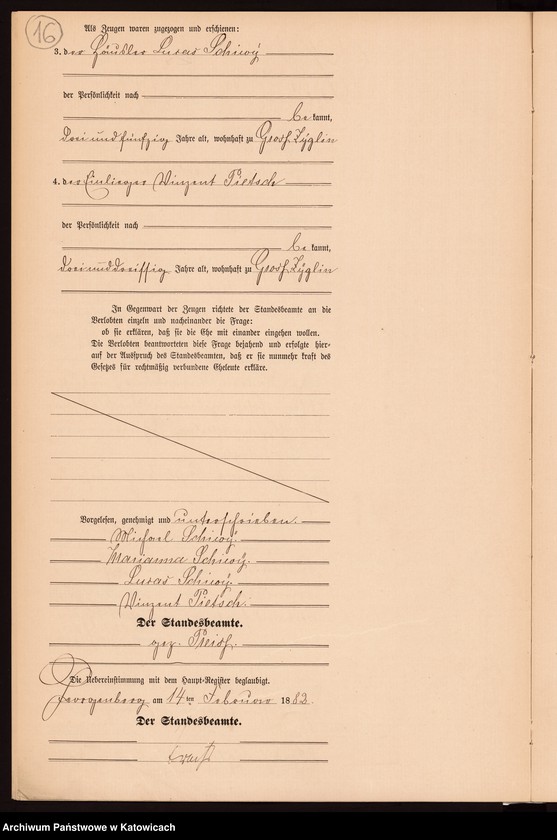 16
Als Zeugen waren zugezogen und erschienen:
3. der Häusler Lucas Schiwy
der Persönlichkeit nach
be kannt,
drei und fünfzig Jahre alt, wohnhaft zu Gross Zyglin
4. der Einlieger Vinzent Pietsch
der Persönlichkeit nach
be kannt,
drei und dreissig Jahre alt, wohnhaft zu Gross Zyglin
In Gegenwart der Zeugen richtete der Standesbeamte an die
Verlobten einzeln und nacheinander die Frage:
ob sie erklären, daß sie die Ehe mit einander eingehen wollen.
Die Verlobten beantworteten diese Frage bejahend und erfolgte hier-
auf der Ausspruch des Standesbeamten, daß er sie nunmehr kraft des
Gesetzes für rechtmäßig verbundene Eheleute erkläre.
Vorgelesen, genehmigt und unterschrieben.
Michael Schiwy.
Marianna Schiwy.
Lucas Schiwy.
Vinzent Pietsch.
Der Standesbeamte.
gez.
Die Uebereinstimmung mit dem Haupt-Register beglaubigt.
Georgenberg am 14ten Februar 1883.
Der Standesbeamte.
Archiwum Państwowe w Katowicach